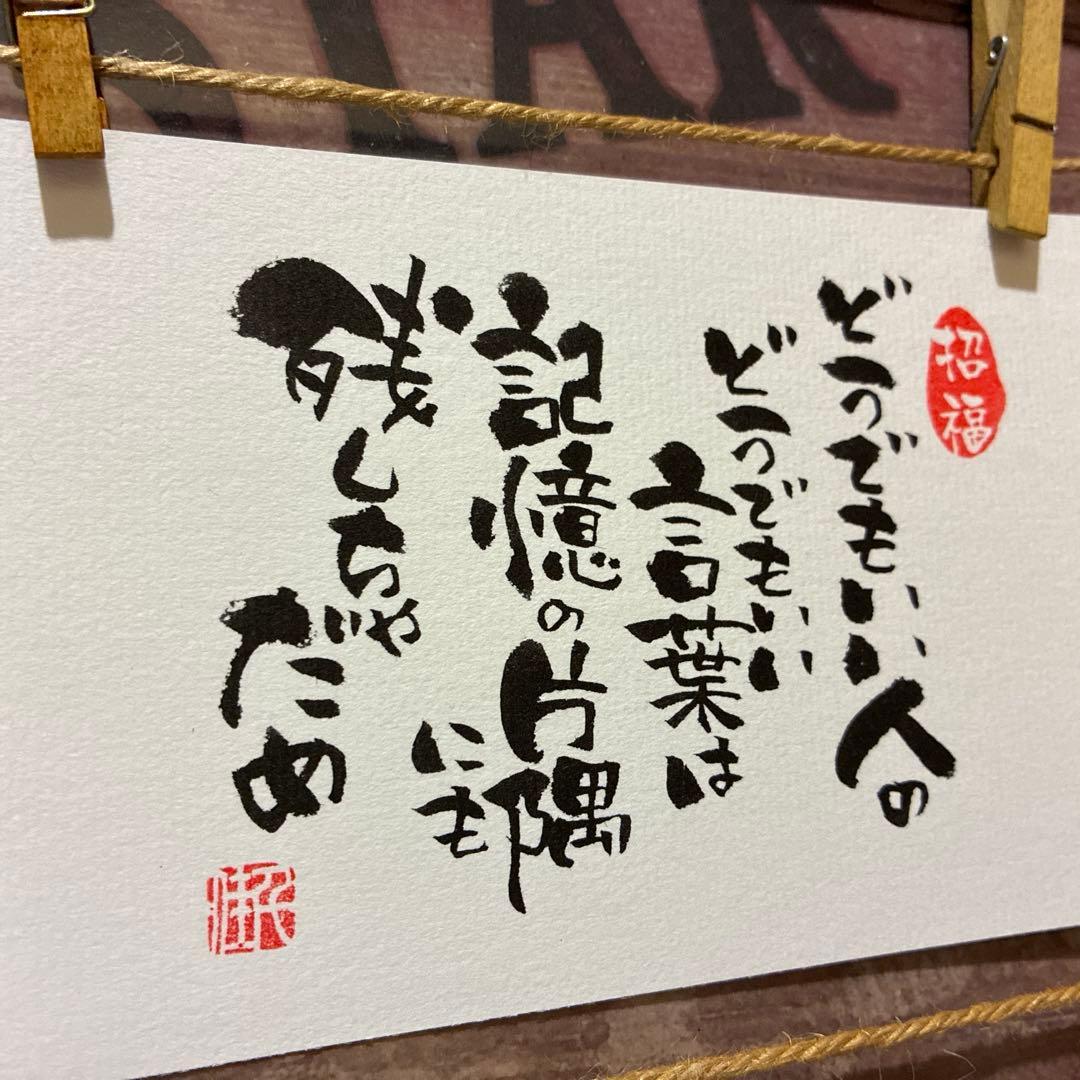 招福
どうでもいい人の
どうでもいい
言葉は
記憶の片隅
にも
残しちゃ
だめ